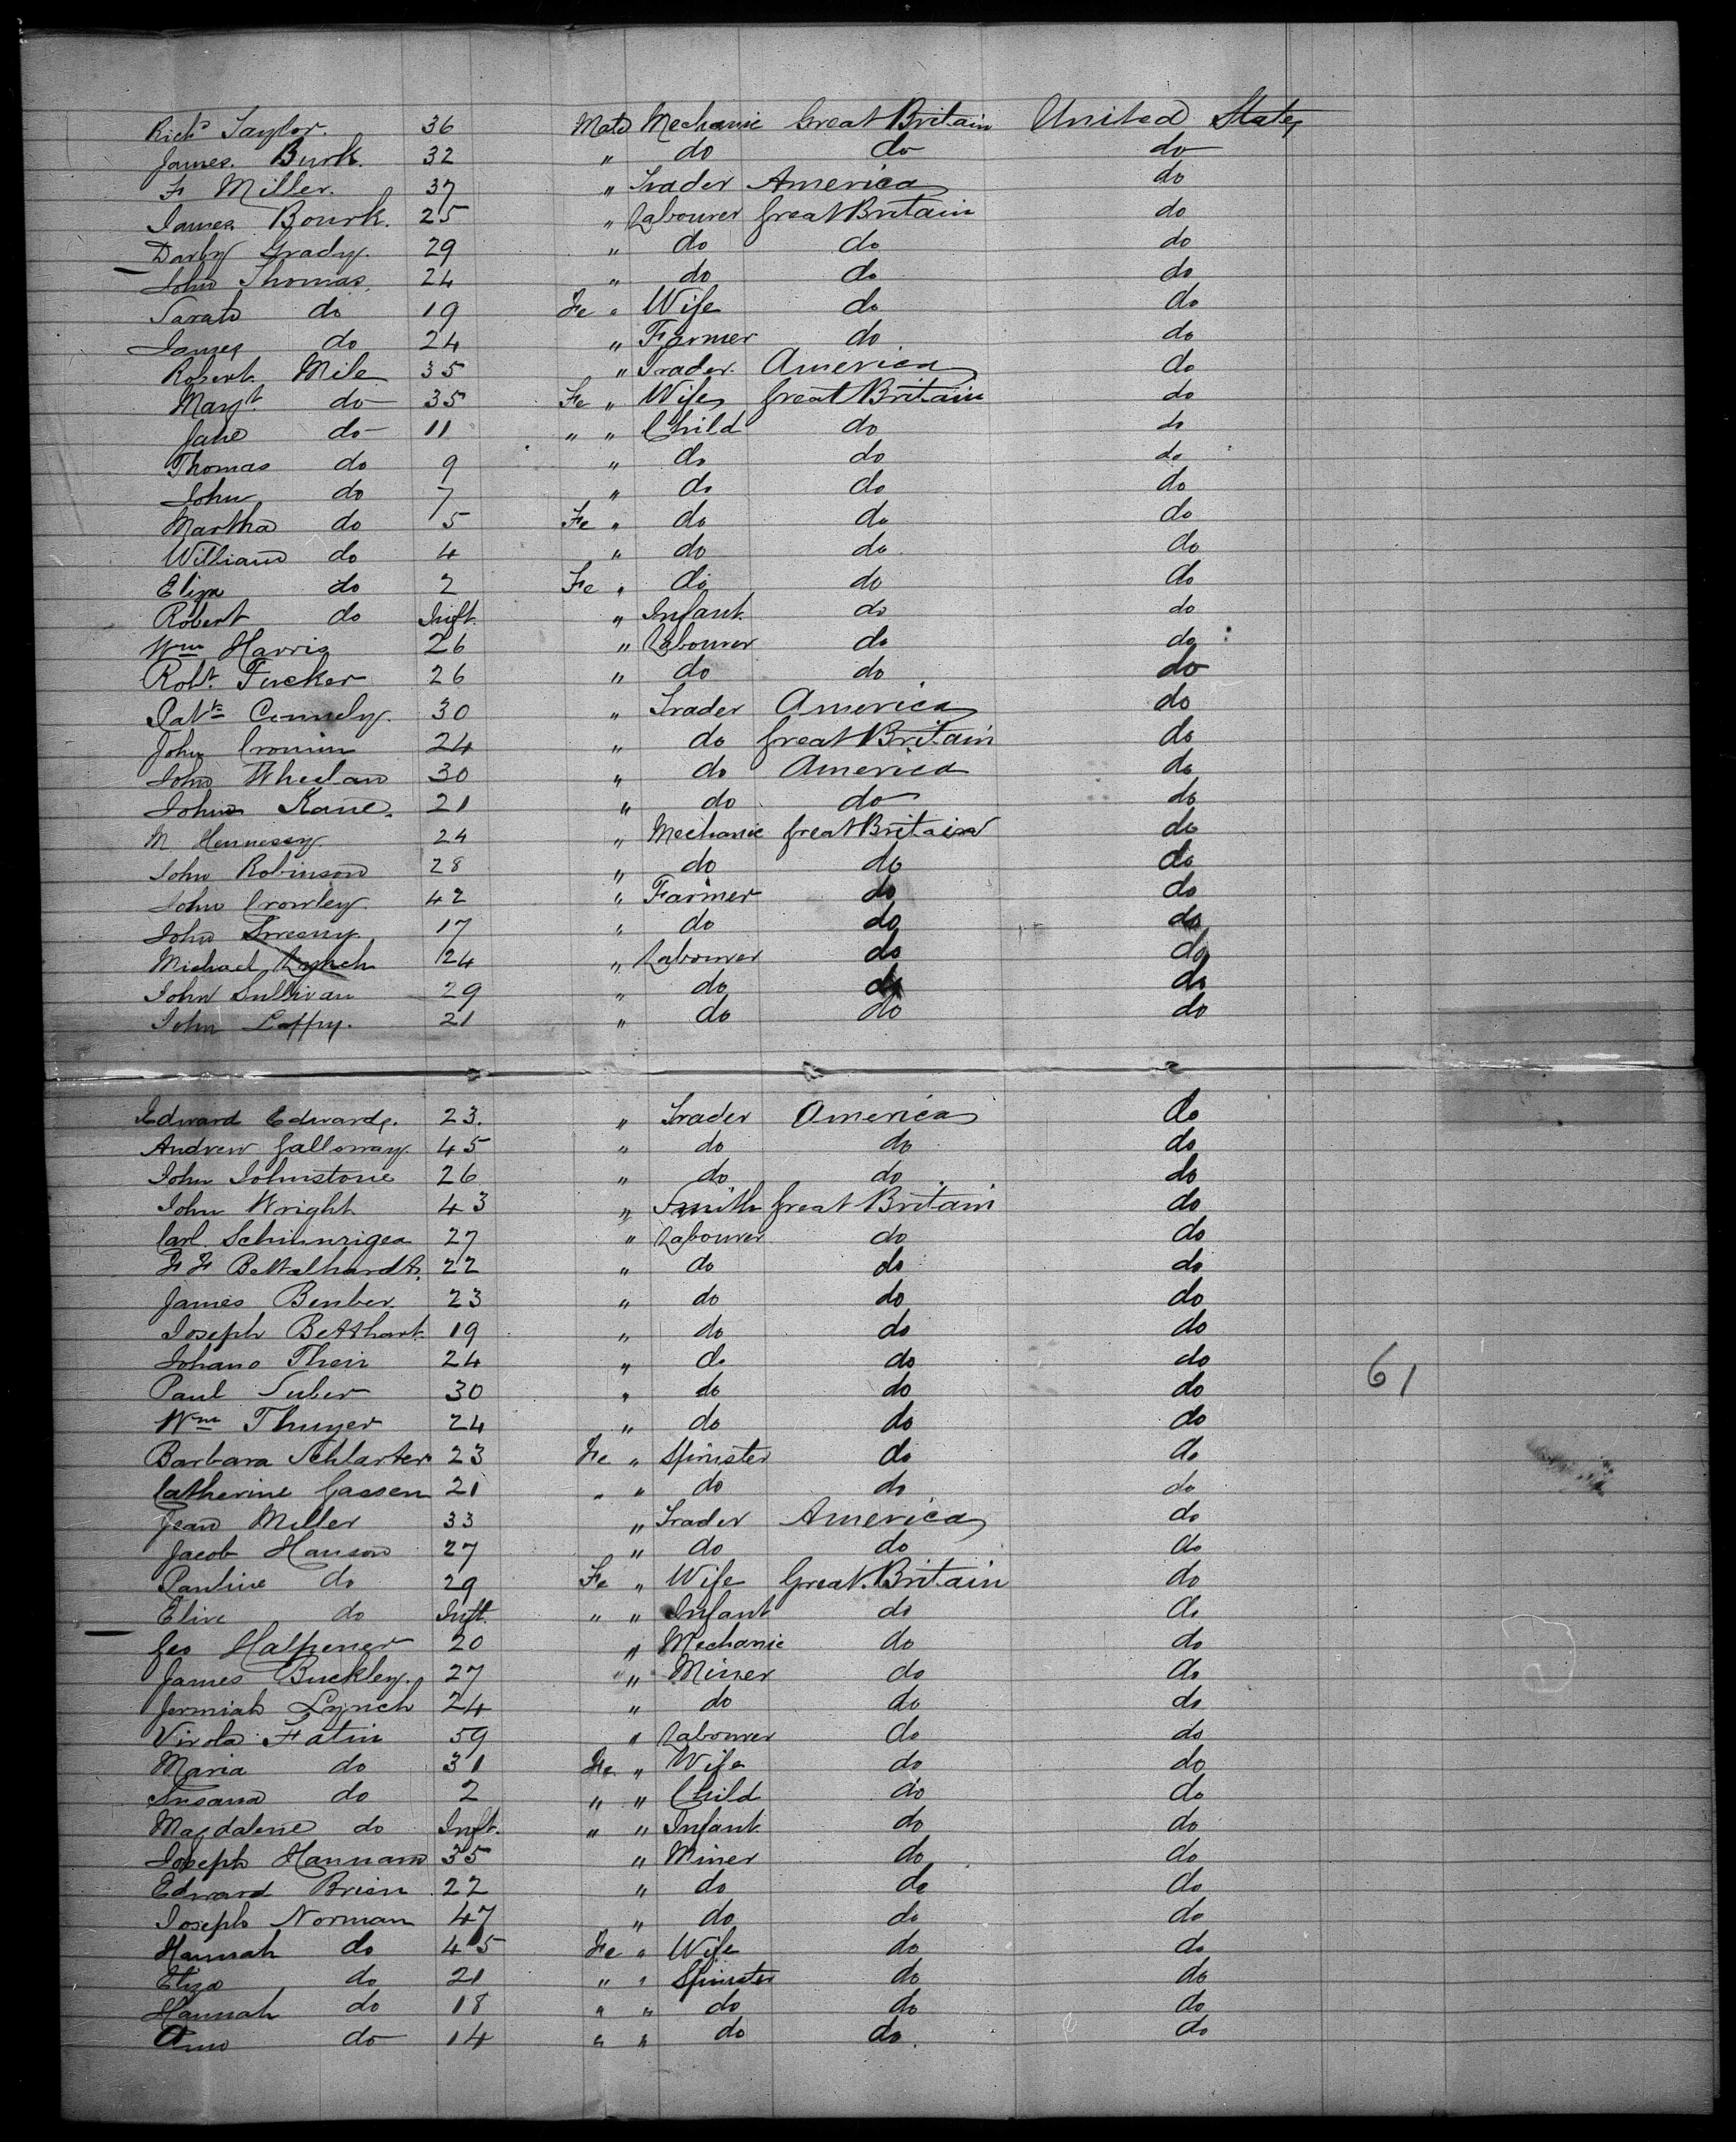 Richd Taylor. 36 Male Mechanic Great Britain United States
James Burk. 32 " do do do
F Miller. 37 " Trader America do
James Bourk. 25 " Labourer Great Britain do
Darby Grady. 29 " do do do
John Thomas. 24 " do do do
Sarah do 19 Fe " Wife do do
James do 24 " Farmer do do
Robert Mile 35 " Trader America do
Margt. do 35 Fe " Wife Great Britain do
Jane do 11 " " Child do do
Thomas do 9 " do do do
John do 7 " do do do
Martha do 5 Fe " do do do
William do 4 " do do do
Eliza do 2 Fe " do do do
Robert do Inft. " Infant do do
Wm Harris 26 " Labourer do do
Robt. Tucker 26 " do do do
Patk Connely. 30 " Trader America do
John Cronin 24 " do Great Britain do
John Whelan 30 " do America do
John Kane. 21 " do do do
M Hennessy. 24 " Mechanic Great Britain do
John Robinson 28 " do do do
John Crowley 42 " Farmer do do
John Sweeny. 17 " do do do
Michael Lynch 24 " Labourer do do
John Sullivan 29 " do do do
John Loffry. 21 " do do do
Edward Edwards. 23. " Trader America do
Andrew Galloway. 45 " do do do
John Johnstone 26 " do do do
John Wright 43 " Smith Great Britain do
Carl 27 " Labourer do do
F F 22 " do do do
James Benber 23 " do do do
Joseph Betthart 19 " do do do
Johano Thein 24 " do do do
Paul Suber 30 " do do do
61
Wm Thuyer 24 " do do do
Barbara Schlarter 23 Fe " Spinster do do
Catherine Gassen 21 " " do do do
Jean Miller 33 " Trader America do
Jacob Hanson 27 " do do do
Pauline do 29 Fe " Wife Great Britain do
Elive do Inft. " " Infant do do
Geo Halpener 20 " Mechanic do do
James Buckley. 27 " Miner do do
Jermiah Lynch 24 " do do do
Virola Fatin 59 " Labourer do do
Maria do 31 Fe " Wife do do
Susana do 2 " " Child do do
Magdalene do Inft. " " Infant do do
Joseph Hannam 35 " Miner do do
Edward Brien 22 " do do do
Joseph Norman 47 " do do do
Hannah do 45 Fe " Wife do do
Eliza do 21 " " Spinster do do
Hannah do 18 " " do do do
Ann do 14 " " do do do